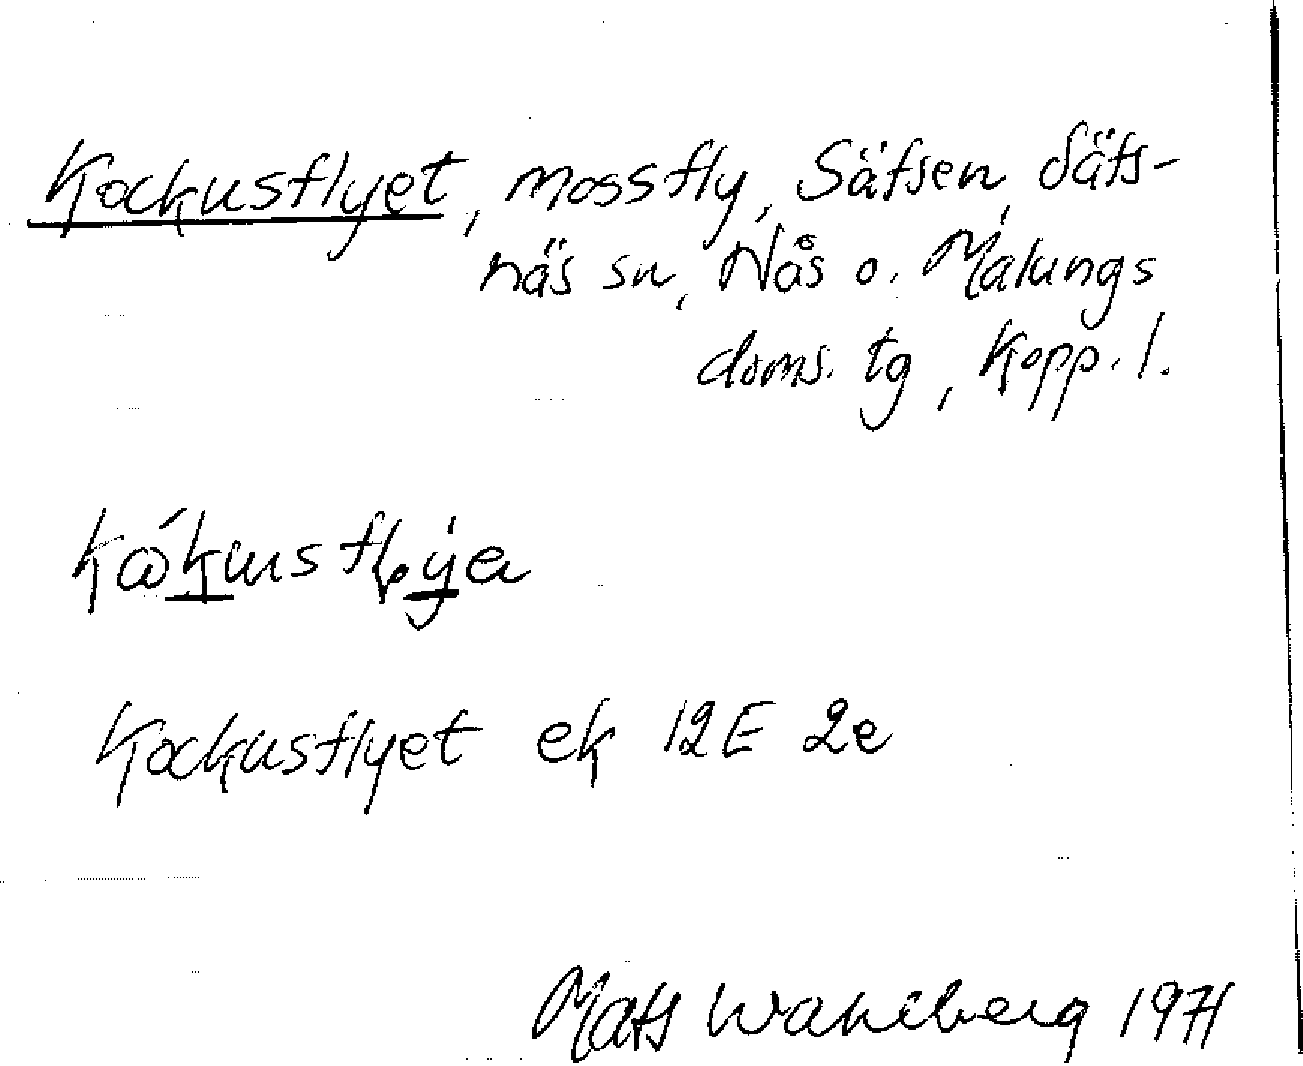 Kockusflyet, mossfly, Säfsen, Säfs-
näs sn, Nås o. Malungs
doms. tg, Kopp. l.
Kockusflyet ek 12E 2e
Mats Wahlberg 1971